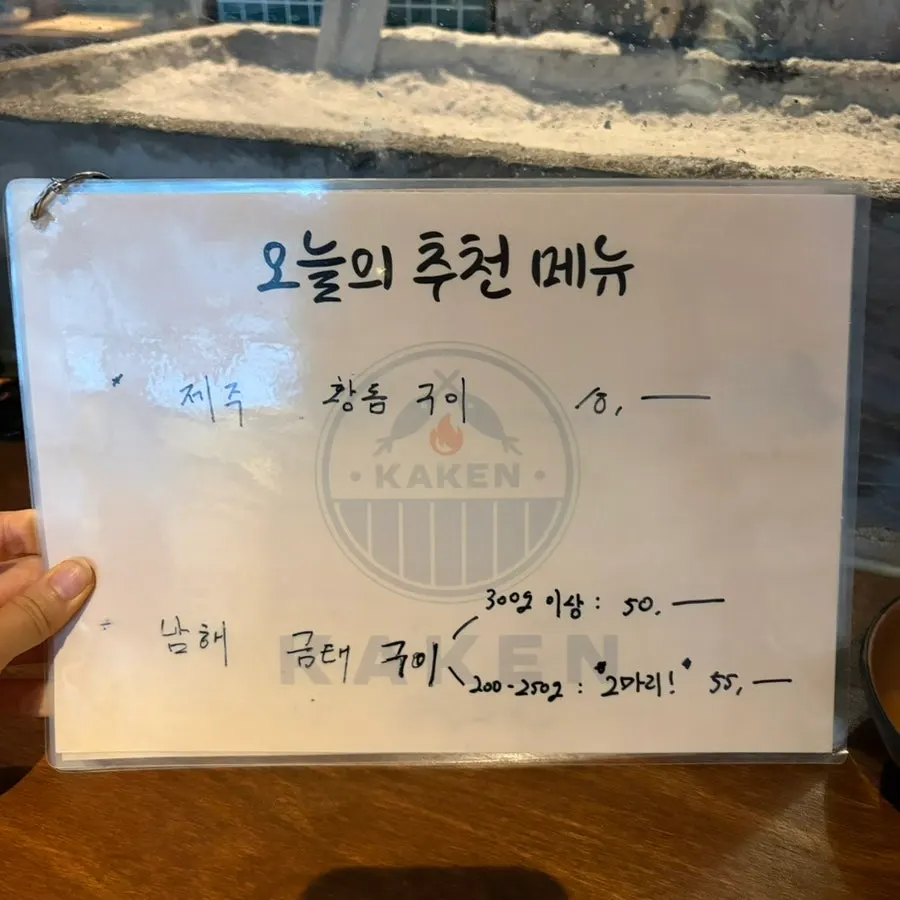 오늘의 추천 메뉴
* 제주 황돔 구이
KAKEN
300g 이상 : 50,—
* 남해 금태 구이
KAKEN
200-250g : "2마리!" 55,—